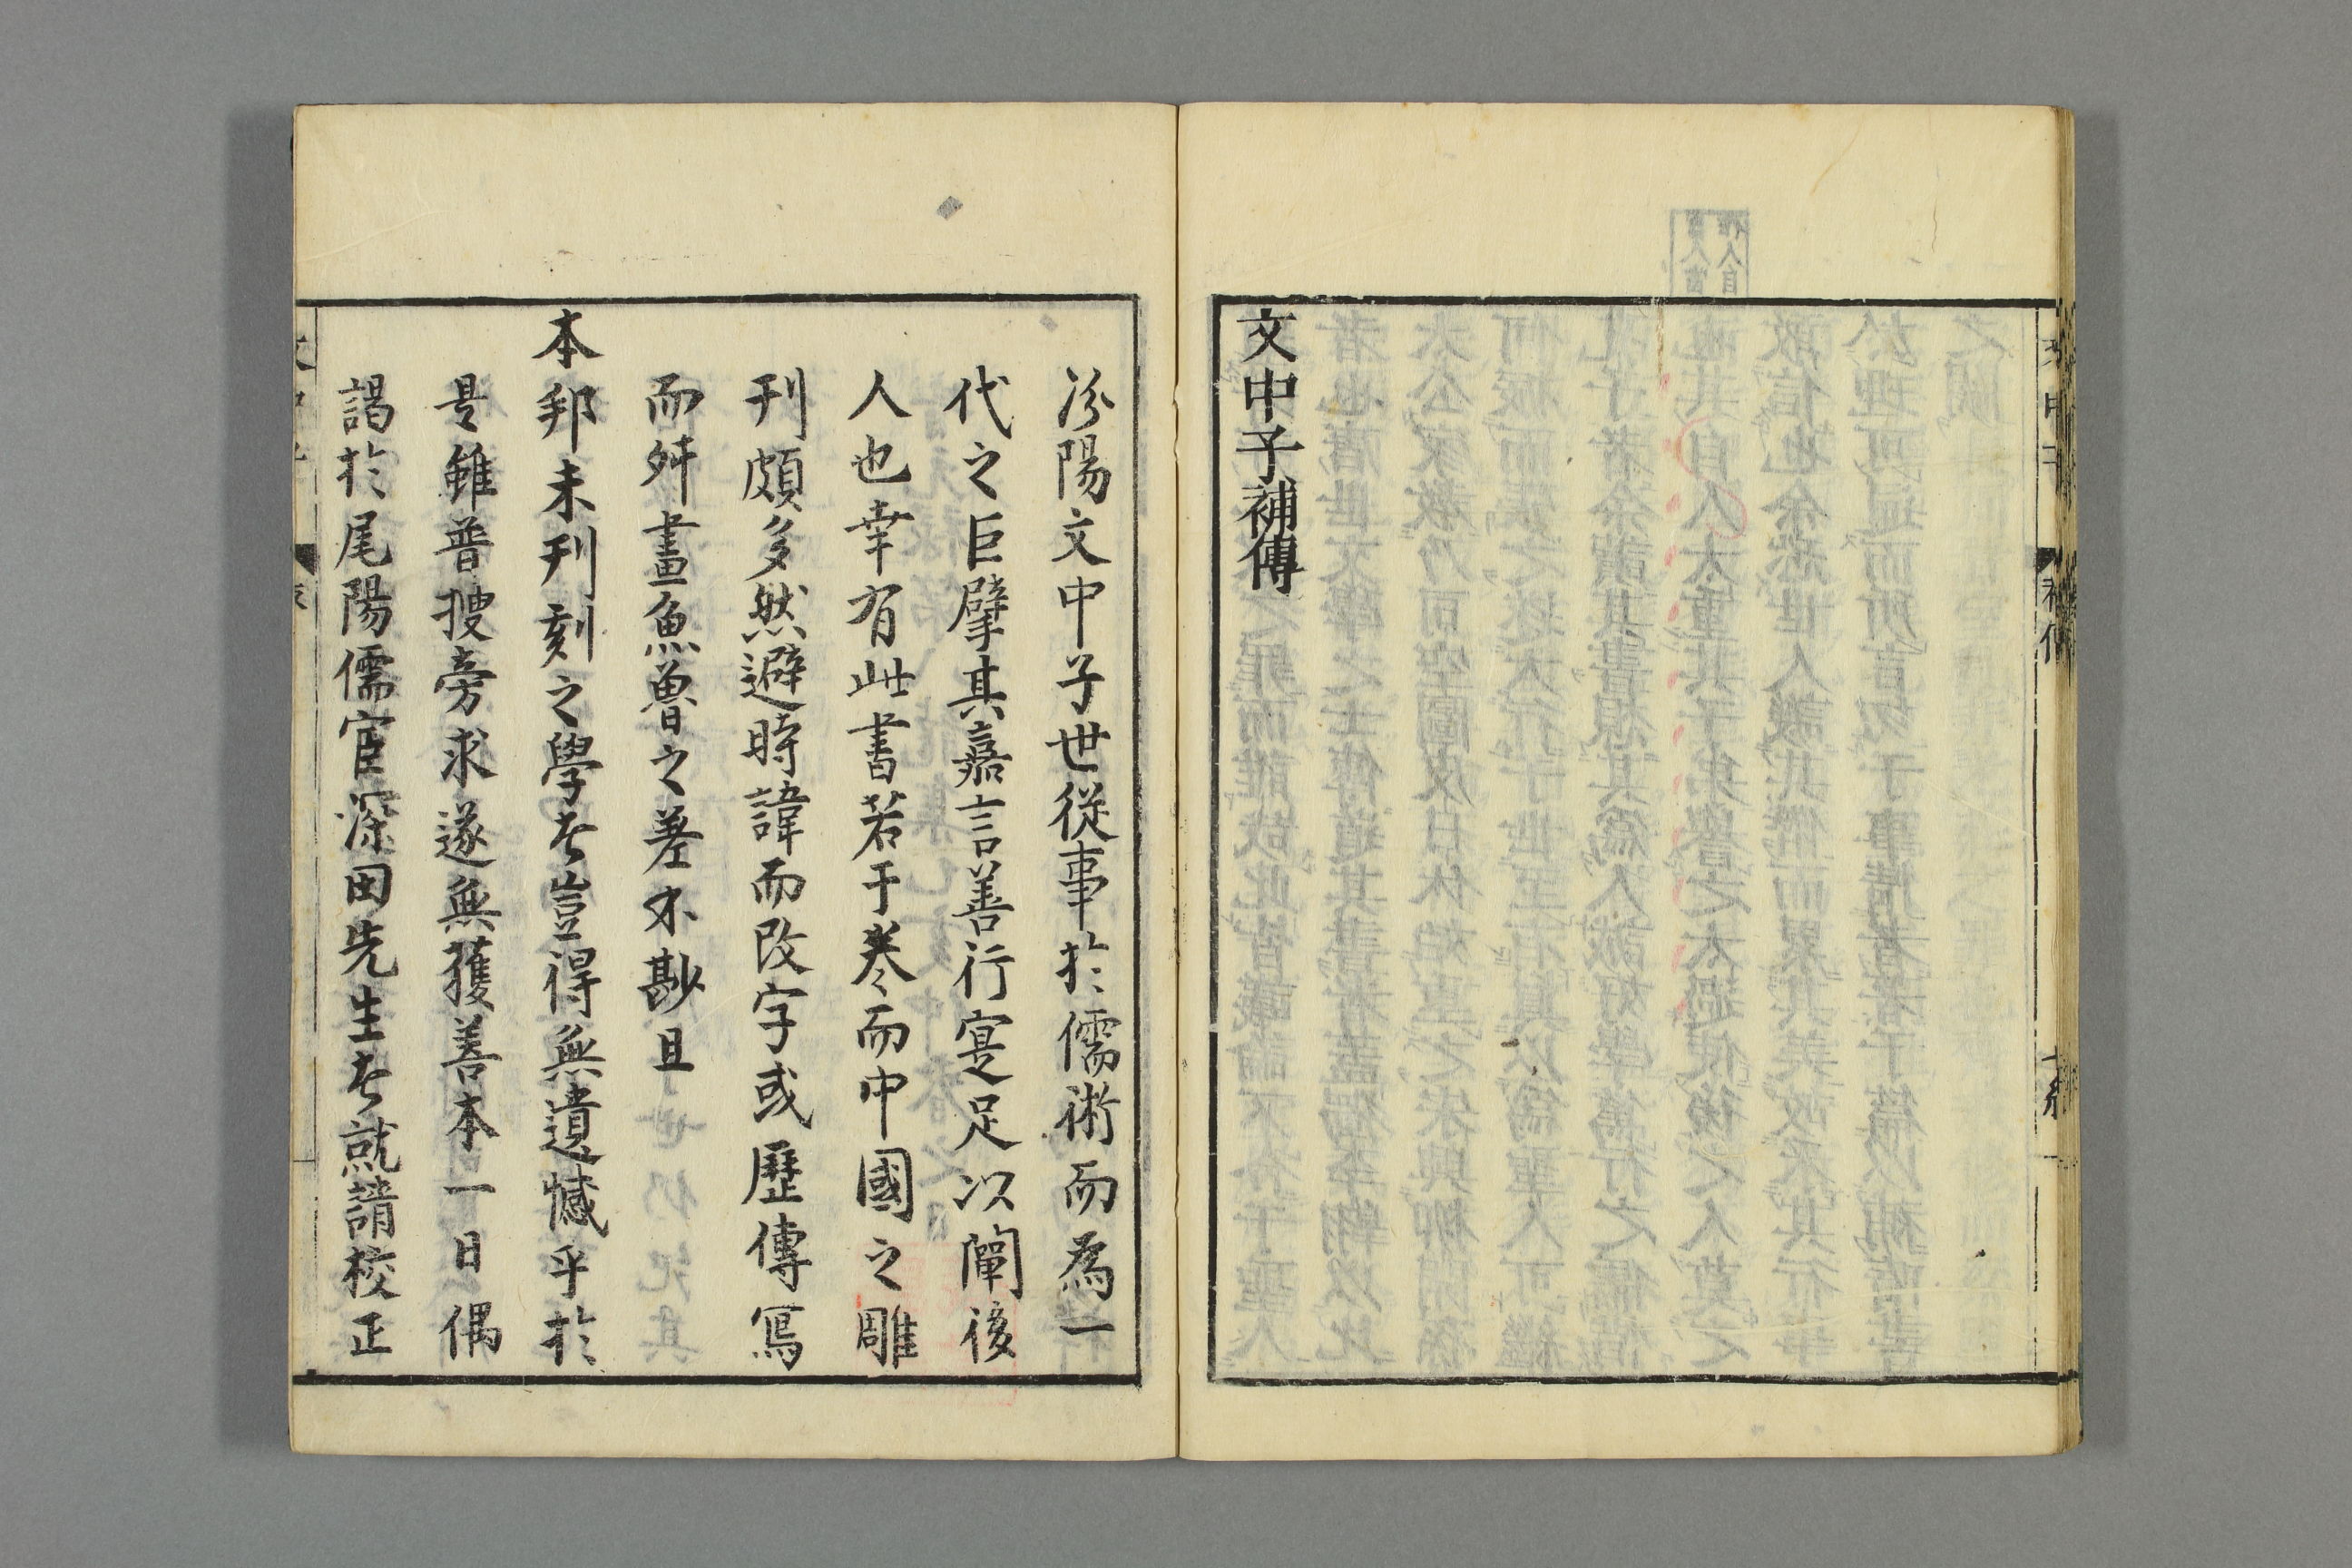 文中子補傳
汾陽文中子世從事於儒術而為一
代之巨擘其嘉言善行寔足以闡後
人也幸有此書若干卷而中國之雕
刊頗多然避時諱而改字或歷傳寫
而舛畫魚魯之差不尠且
本邦未刊刻之學者豈得無遺憾乎於
是雖普搜旁求遂無獲善本一日偶
謁於尾陽儒官深田先生者就請校正